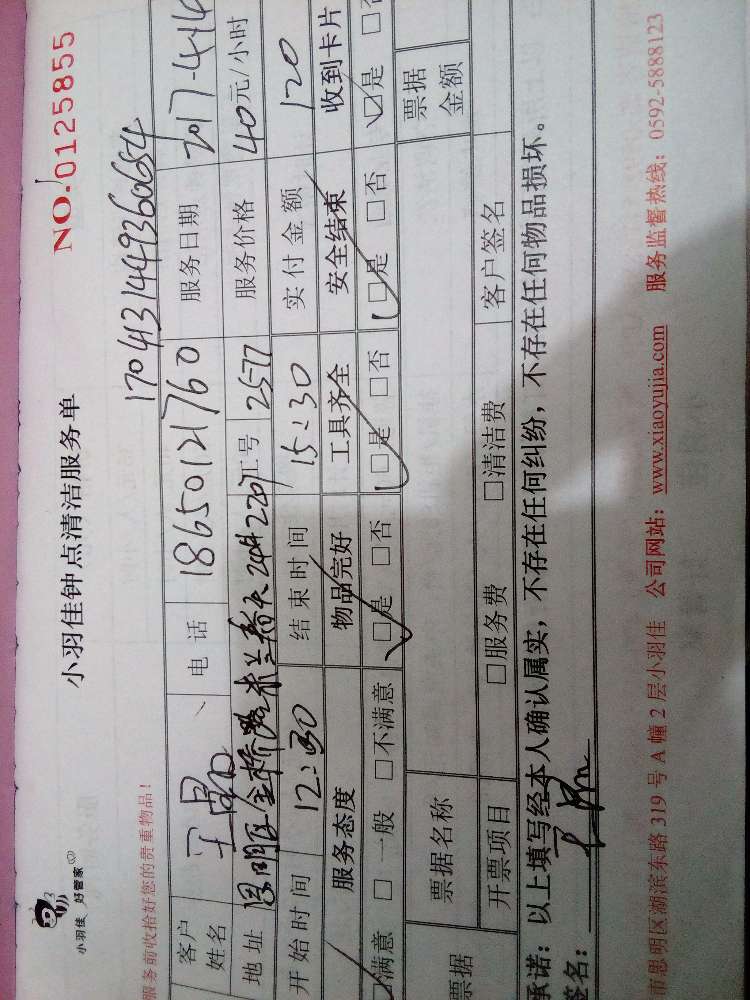 小羽佳 好管家
小羽佳钟点清洁服务单
NO.0125855
服务前收拾好您的贵重物品!
1704131449360654
客户姓名 电话 18650121760 服务日期 2017-4-14
地址 思明区金桥路米兰春天 2204 工号 2577 服务价格 40元/小时
开始时间 12:30 结束时间 15:30 实付金额 120
服务态度 物品完好 工具齐全 安全结束 收到卡片
满意 □ 一般 □不满意 □是 □否 □是 □否 □是 □否 □是
票据 票据名称 票据金额
开票项目 □服务费 □清洁费 客户签名
承诺:以上填写经本人确认属实,不存在任何纠纷,不存在任何物品损坏。
签名:
市思明区湖滨东路 319 号 A 幢 2 层小羽佳 公司网站:www.xiaoyujia.com 服务监督热线:0592-5888123